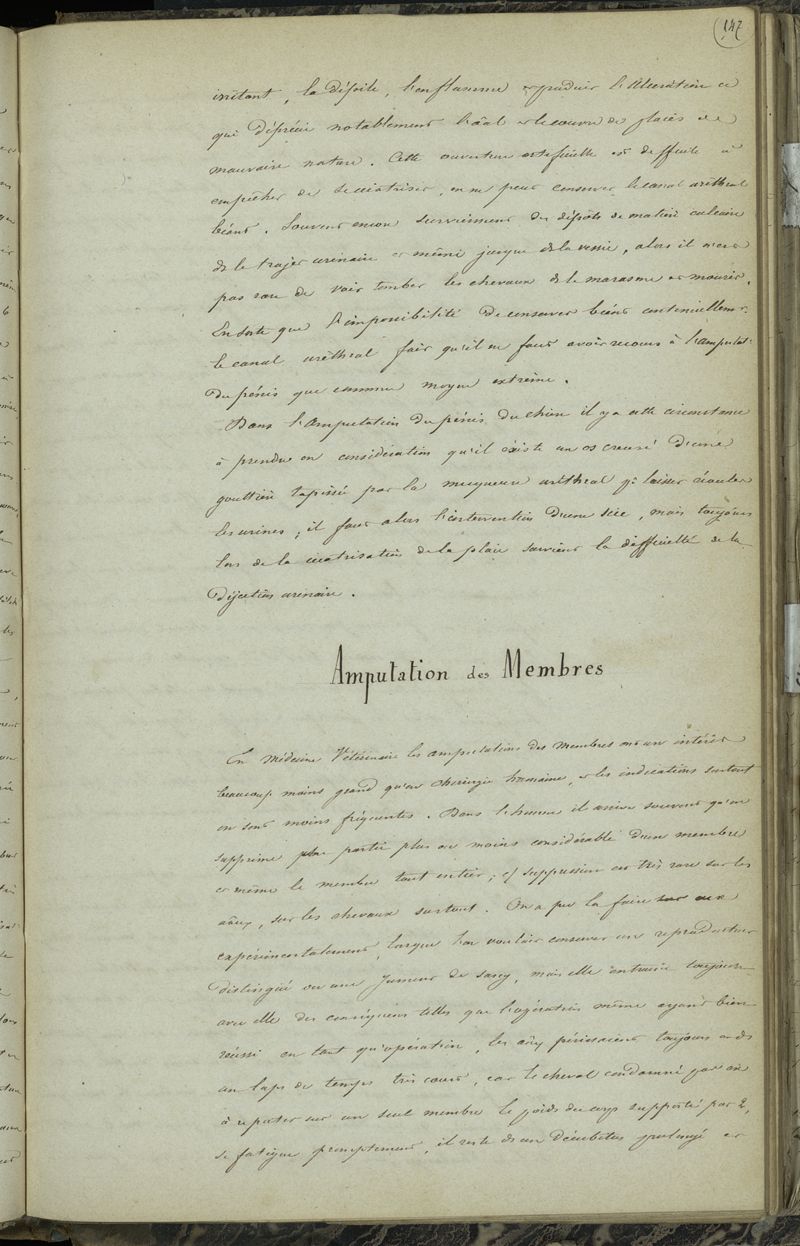 147
irritant, la dépile, l'enflamme et produit l'ulcération ce
qui déprécie notablement l'aâl et le couvre de plaies de
mauvaise nature. Cette ouverture artificielle est difficile à
empêcher de se cicatriser, on ne peut conserver le canal uréthral
béant. Souvent encore surviennent des dépôts de matière calcaire
ds le trajet urinaire et même jusque ds la vessie, alors il n'est
pas rare de voir tomber les chevaux ds le marasme et mourir.
En sorte que l'impossibilité de conserver béant continuellemt
le canal uréthral fait qu'il ne faut avoir recours à l'amputat.
du pénis que comme moyen extrême.
Dans l'amputation du pénis du chien il y a cette circonstance
à prendre en considération qu'il existe un os creusé d'une
gouttière tapissée par la muqueuse uréthral pr laisser écouler
les urines; il faut alors l'intervention d'une scie, mais toujours
lors de la cicatrisation de la plaie survient la difficulté de la
déjection urinaire.
Amputation des Membres
En médecine Vétérinaire les amputations des membres ont un intérêt
beaucoup moins grand qu'en chirurgie humaine, et les indications surtout
en sont moins fréquentes. Dans l'homme il arrive souvent qu'on
supprime une partie plus ou moins considérable d'un membre
et même le membre tout entier; cte suppression est très rare sur les
aâux, sur les chevaux surtout. On a pu la faire sur eux
expérimentalement, lorsque l'on voulait conserver un reproducteur
distingué ou une jument de sang, mais elle entraîne toujours
avec elle des conséquences telles que l'opération même ayant bien
réussi en tant qu'opération, les aâux périssaient toujours ands
un laps de temps très court, car le cheval condamné par an
à reporter sur un seul membre le poids du corps supporté par 2,
se fatigue promptement, il reste ds un décubitus prolongé et